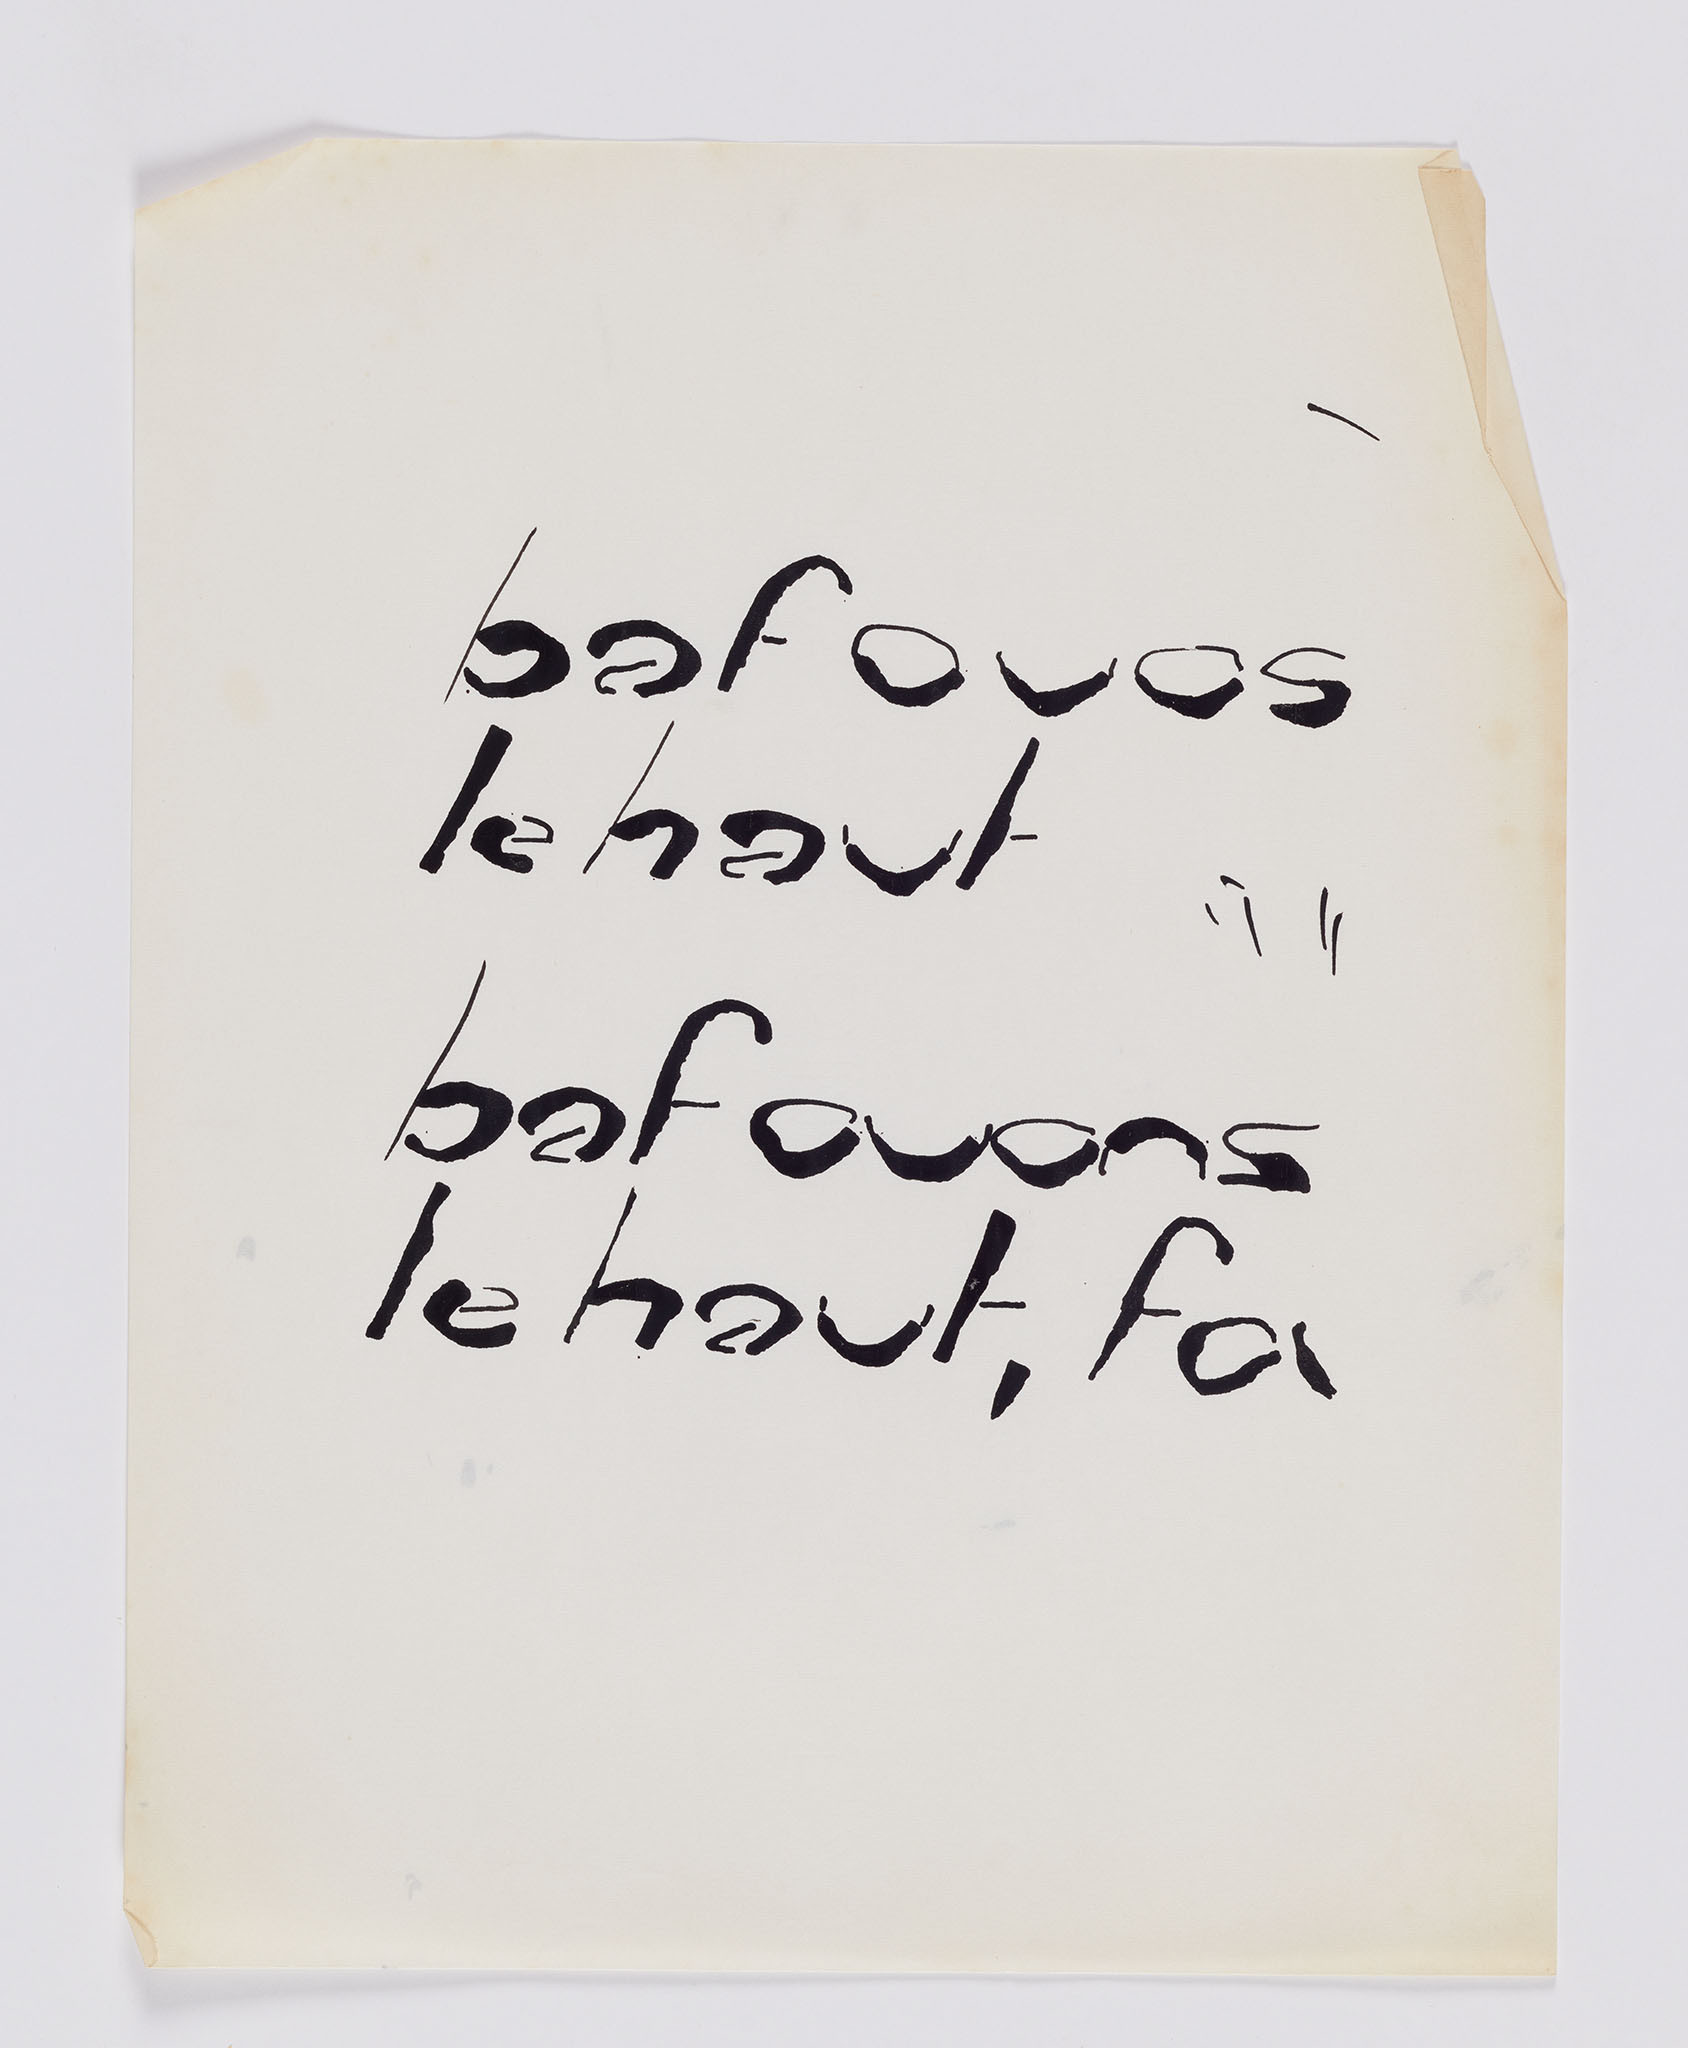 bafouos
le haut
bafouons
le haut, fa